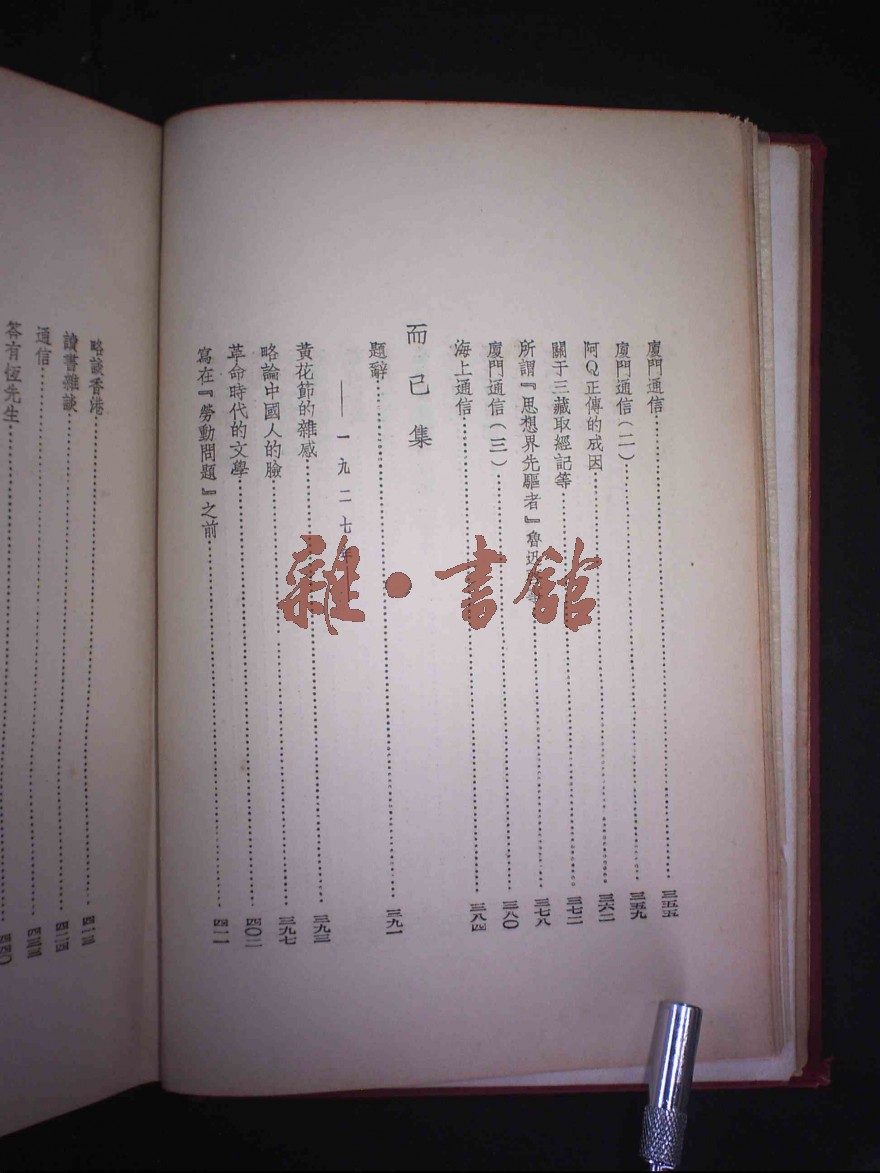 廈門通信……三五五
廈門通信（二）……三五九
阿Q正傳的成因……三六二
關于三藏取經記等……三七二
所謂『思想界先驅者』魯迅……三七八
廈門通信（三）……三八〇
海上通信……三八四
而已集
題辭……三九一
——一九二七年
黃花節的雜感……三九三
略論中國人的臉……三九七
革命時代的文學……四〇二
寫在『勞動問題』之前……四一一
略談香港……四一三
讀書雜談……四二四
通信……四三三
答有恆先生……四四〇
雜·書館